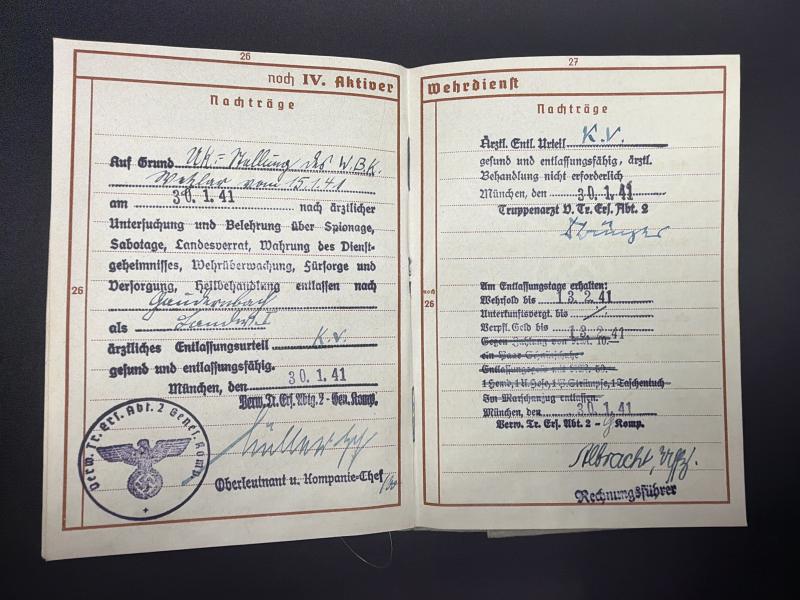 26
noch IV. Aktiver
Nachträge
Auf Grund Uk.-Stellung des W.B.K.
Wetzlar vom 15.1.41
am 30.1.41 nach ärztlicher
Untersuchung und Belehrung über Spionage,
Sabotage, Landesverrat, Wahrung des Dienst-
geheimnisses, Wehrüberwachung, Fürsorge und
Versorgung, Heilbehandlung entlassen nach
26
Gaudernbach
als
ärztliches Entlassungsurteil k.v.
gesund und entlassungsfähig.
München, den 30.1.41
Verw. Tr. Ers. Abtg. 2 - Gen. Komp.
Oberleutnant u. Kompanie-Chef
Verw. Tr. Ers. Abt. 2 Genes. Komp.
27
Wehrdienst
Nachträge
Ärztl. Entl. Urteil K.V.
gesund und entlassungsfähig, ärztl.
Behandlung nicht erforderlich
München, den 30.1.41
Truppenarzt V. Tr. Ers. Abt. 2
Am Entlassungstage erhalten:
Wehrsold bis 13.2.41
noch
26
Unterkunftsvergt. bis /
Verpfl. Geld bis 13.2.41
1 Hemd, 1 U. Hose, 1 P. Strümpfe, 1 Taschentuch
Im Marschanzug entlassen.
München, den 30.1.41
Verw. Tr. Ers. Abt. 2 - G Komp.
Albracht, Uffz.
Rechnungsführer